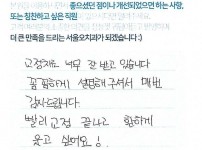 좋으셨던 점이나 개선되었으면 하는 사항,
또는 칭찬하고 싶은 직원
더 큰 만족을 드리는 서울오치과가 되겠습니다 :)
교정치료 너무 잘 받고 있습니다
꼼꼼하게 설명해 주셔서 매번
감사드립니다.
빨리 교정 끝나고 환하게
웃고 싶어요!